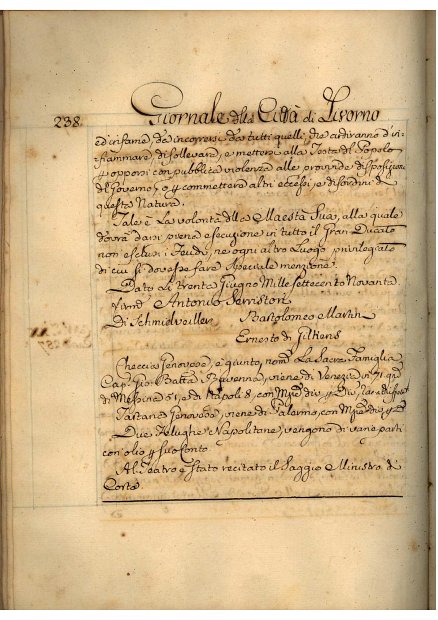 238. Giornale della Città di Livorno
ed infame, da incorrersi da tutti quelli, che ardiranno d'in-
fiammare, di sollevare, e mettersi alla Testa del Popolo
p opporsi con pubblica violenza alle provvide disposizioni
del Governo, o p commettere altri eccessi, e disordini di
questa Natura.
Tale è La volontà della Maestà Sua, alla quale
dovrà darsi piena esecuzione in tutto il Gran Ducato
non esclusi i Feudi, ne ogni altro Luogo privilegiato
di cui si dovesse fare speciale menzione.
Dato Li Trenta Giugno Mille Settecento Novanta.
Firmd Antonio Serristori
Di Schmidveiller Bartolomeo Martin
Ernesto di Gilkens
Checcia Genovese, è giunto, nom. La Sacra Famiglia,
Cap. Gio. Batta viene di Venezia in 71. gni
di Messina 51, e da Napoli 8, con
Tartana Genovese, viene di Palermo, con
Due Filughe Napolitane, vengono di varie parti
con olio p suo Conto.
Al Teatro è stato recitato il Saggio Ministro di
Corte.